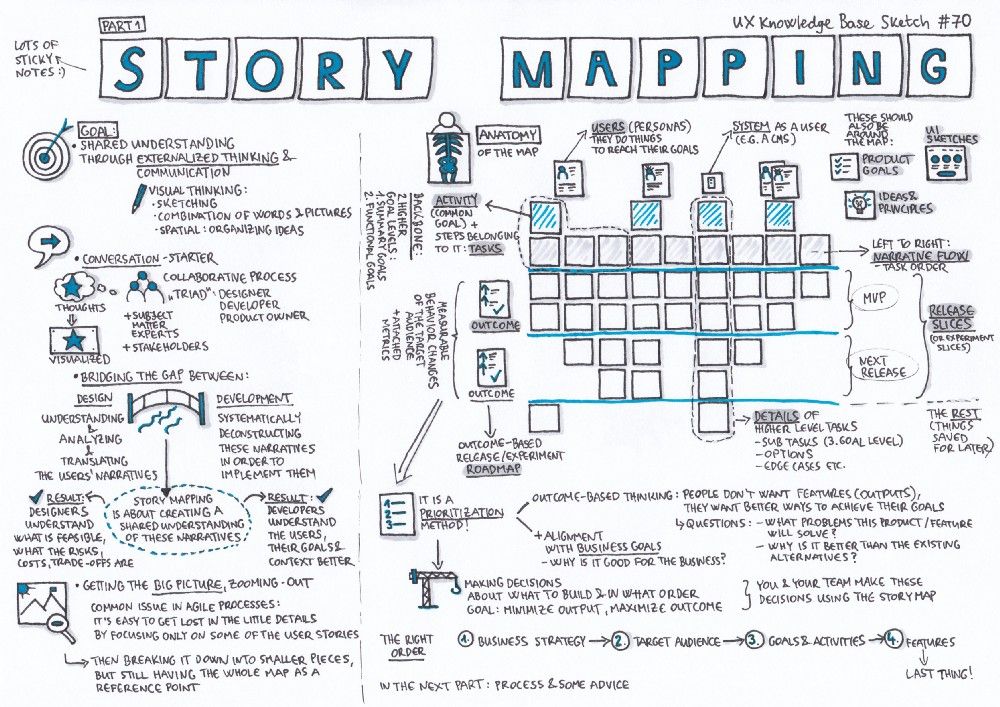 PART 1
UX KNOWLEDGE BASE SKETCH #70
LOTS OF
STICKY
NOTES :)
STORY MAPPING
GOAL:
• SHARED UNDERSTANDING
THROUGH EXTERNALIZED THINKING &
COMMUNICATION
VISUAL THINKING:
• SKETCHING
• COMBINATION OF WORDS & PICTURES
• SPATIAL: ORGANIZING IDEAS
• CONVERSATION - STARTER
THOUGHTS
VISUALIZED
COLLABORATIVE PROCESS
"TRIAD": DESIGNER
DEVELOPER
PRODUCT OWNER
+ SUBJECT
MATTER
EXPERTS
+ STAKEHOLDERS
• BRIDGING THE GAP BETWEEN:
DESIGN
UNDERSTANDING
&
ANALYZING
&
TRANSLATING
THE USERS' NARRATIVES
DEVELOPMENT
SYSTEMATICALLY
DECONSTRUCTING
THESE NARRATIVES
IN ORDER TO
IMPLEMENT THEM
RESULT:
DESIGNERS
UNDERSTAND
WHAT IS FEASIBLE,
WHAT THE RISKS,
COSTS, TRADE-OFFS ARE
STORY MAPPING
IS ABOUT CREATING A
SHARED UNDERSTANDING
OF THESE NARRATIVES
RESULT:
DEVELOPERS
UNDERSTAND
THE USERS,
THEIR GOALS &
CONTEXT BETTER
• GETTING THE BIG PICTURE, ZOOMING-OUT
COMMON ISSUE IN AGILE PROCESSES:
IT'S EASY TO GET LOST IN THE LITTLE DETAILS
BY FOCUSING ONLY ON SOME OF THE USER STORIES
THEN BREAKING IT DOWN INTO SMALLER PIECES,
BUT STILL HAVING THE WHOLE MAP AS A
REFERENCE POINT
ANATOMY
OF THE MAP
USERS (PERSONAS)
THEY DO THINGS
TO REACH THEIR GOALS
SYSTEM AS A USER
(E.G. A CMS)
THESE SHOULD
ALSO BE
AROUND
THE MAP:
UI
SKETCHES
PRODUCT
GOALS
IDEAS &
PRINCIPLES
BACKBONE:
2 HIGHER
GOAL LEVELS:
1. SUMMARY GOALS
2. FUNCTIONAL GOALS
ACTIVITY
(COMMON
GOAL) +
STEPS BELONGING
TO IT: TASKS
LEFT TO RIGHT:
NARRATIVE FLOW
- TASK ORDER
MEASURABLE
BEHAVIOR CHANGES
OF THE TARGET
AUDIENCE
+ ATTACHED
METRICS
OUTCOME
OUTCOME
MVP
NEXT
RELEASE
RELEASE
SLICES
(OR EXPERIMENT
SLICES)
OUTCOME-BASED
RELEASE/EXPERIMENT
ROADMAP
DETAILS OF
HIGHER LEVEL TASKS
- SUB TASKS (3. GOAL LEVEL)
- OPTIONS
- EDGE CASES ETC.
THE REST
(THINGS
SAVED
FOR LATER)
1
2
3
IT IS A
PRIORITIZATION
METHOD!
OUTCOME-BASED THINKING: PEOPLE DON'T WANT FEATURES (OUTPUTS),
THEY WANT BETTER WAYS TO ACHIEVE THEIR GOALS
QUESTIONS: - WHAT PROBLEMS THIS PRODUCT/FEATURE
WILL SOLVE?
- WHY IS IT BETTER THAN THE EXISTING
ALTERNATIVES?
+ ALIGNMENT
WITH BUSINESS GOALS
- WHY IS IT GOOD FOR THE BUSINESS?
MAKING DECISIONS
ABOUT WHAT TO BUILD & IN WHAT ORDER
GOAL: MINIMIZE OUTPUT, MAXIMIZE OUTCOME
YOU & YOUR TEAM MAKE THESE
DECISIONS USING THE STORY MAP
THE RIGHT
ORDER
1. BUSINESS STRATEGY → 2. TARGET AUDIENCE → 3. GOALS & ACTIVITIES → 4. FEATURES
LAST THING!
IN THE NEXT PART: PROCESS & SOME ADVICE